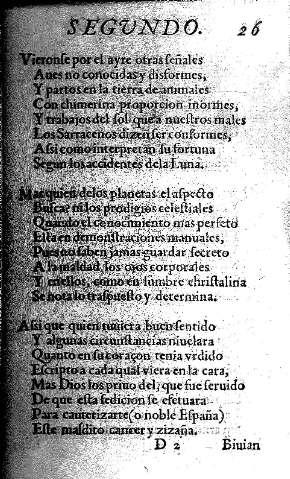 SEGUNDO. 26
Vieronse por el ayre otras señales
Aues no conocidas y disformes,
Y partos en la tierra de animales
Con chimerina proporcion inormes,
Y trabajos del sol que a nuestros males
Los Sarracenos dizen ser conformes,
Assi como interpretan su fortuna
Segun los accidentes dela Luna.
Mas quien delos planetas el aspecto
Buscar ni los prodigios celestiales
Quando el conocimiento mas perfeto
Està en demonstraciones manuales,
Pues no saben jamas guardar secreto
A la maldad, los ojos corporales
Y enellos, como en lumbre christalina
Se nota lo traspuesto y determina.
Assi que quien tuuiera buen sentido
Y algunas circunstancias niuelara
Quanto en su coraçon tenia vrdido
Escripto a cada qual viera en la cara,
Mas Dios los priuo del, que fue seruido
De que esta sedicion se efetuara
Para cauterizarte (o noble España)
Este maldito cancer y zizaña.
D 2 Biuian